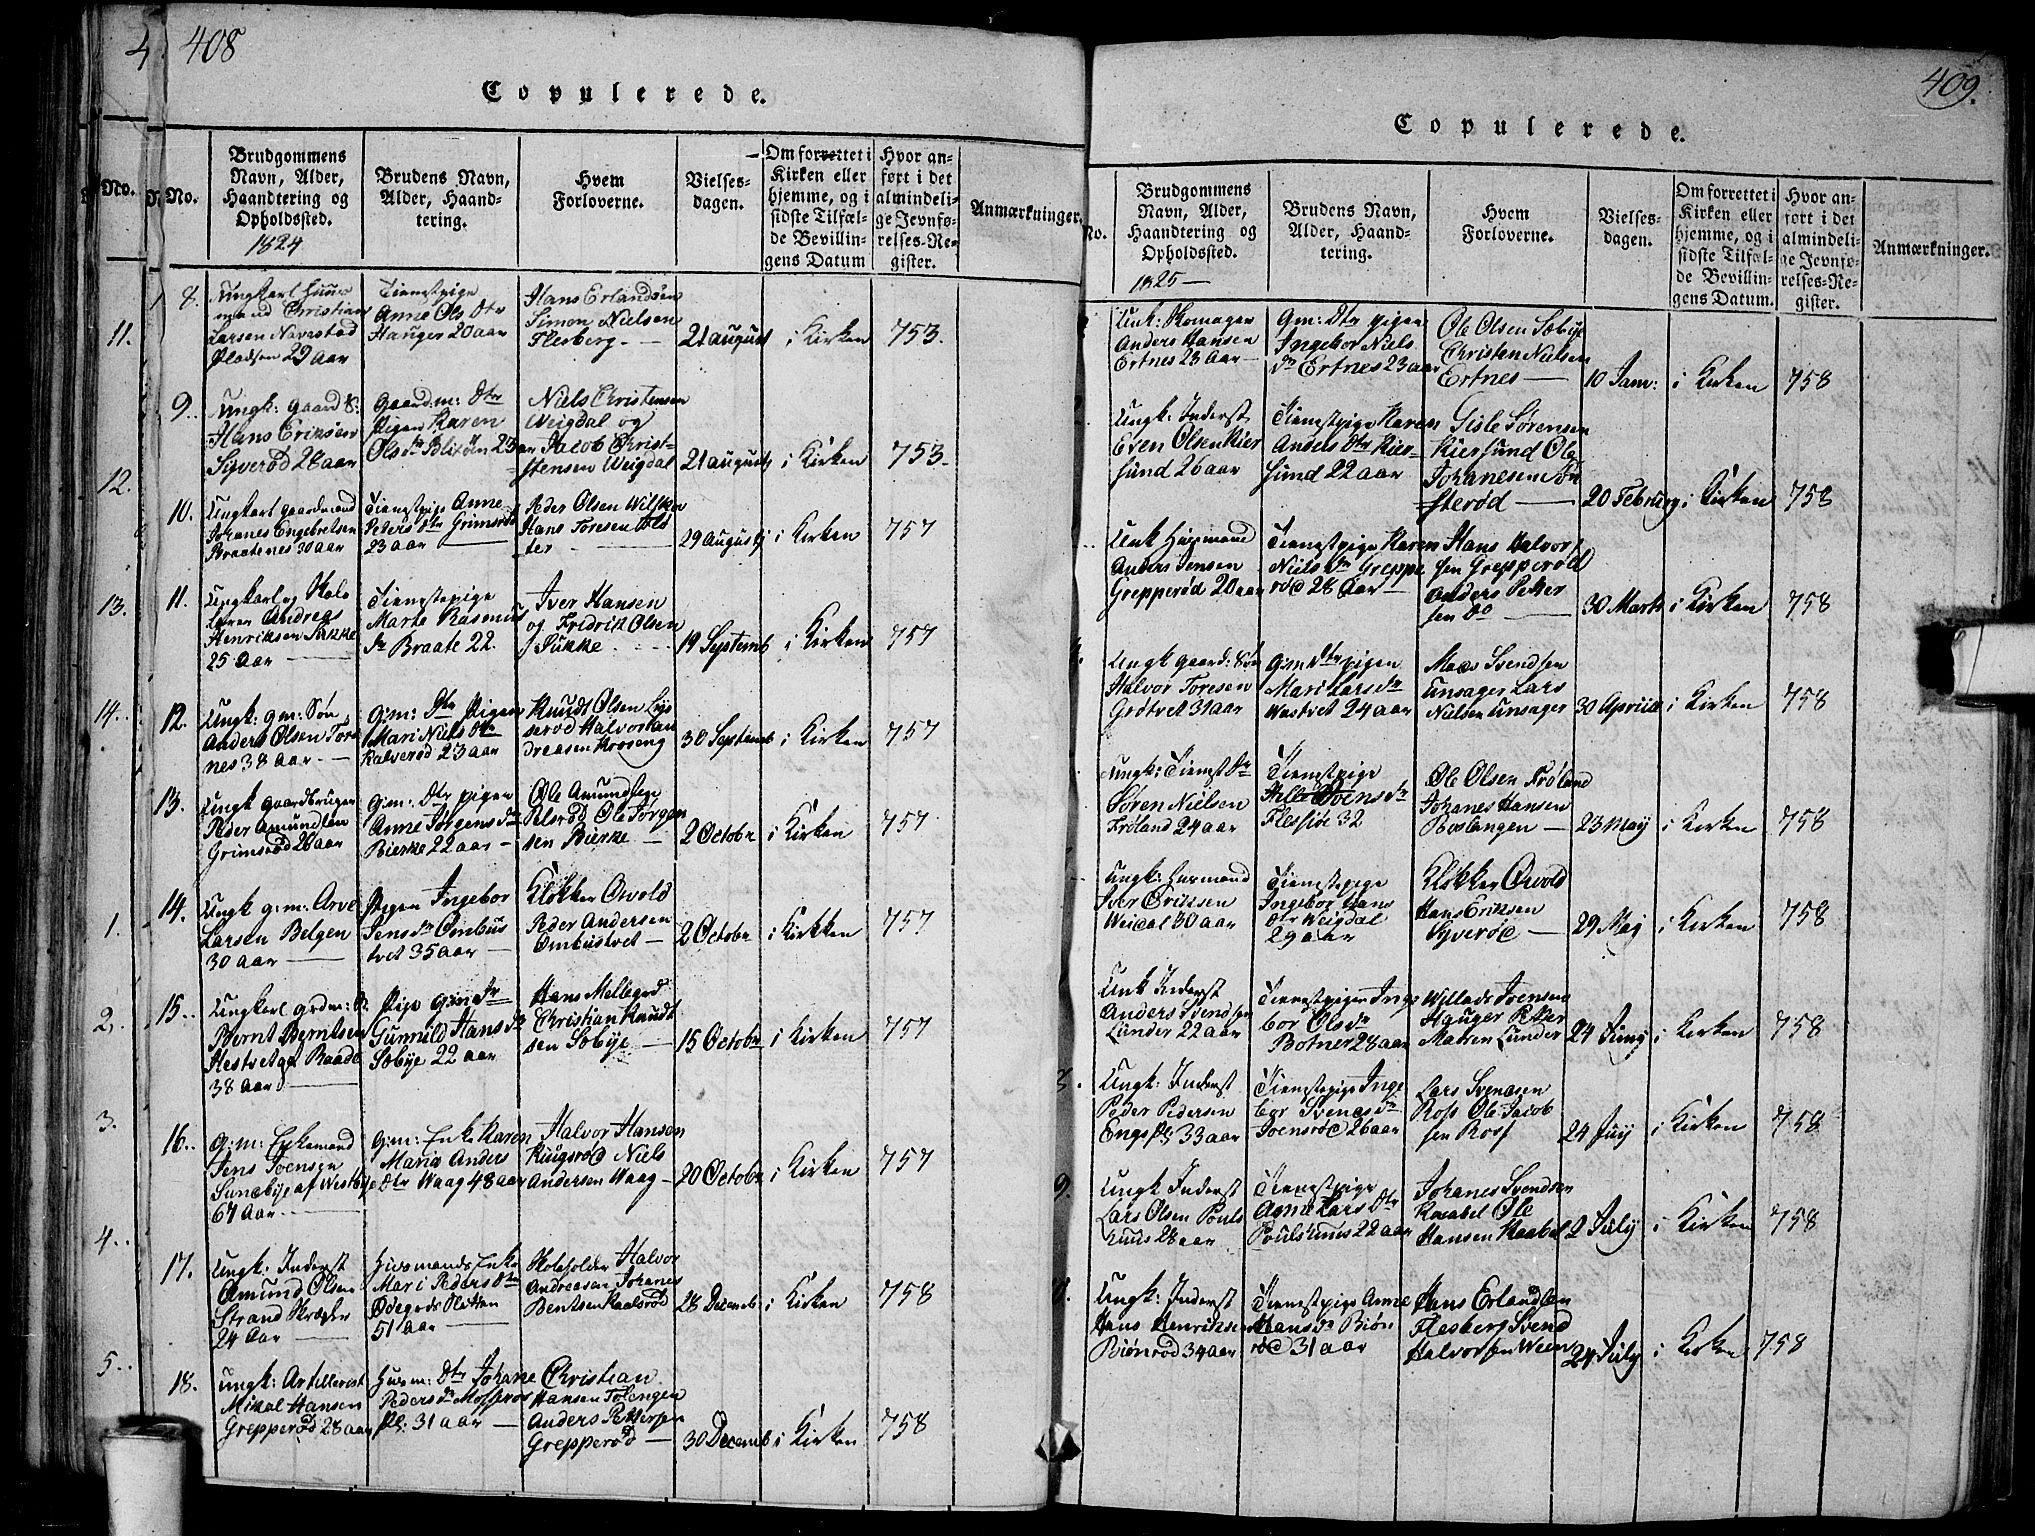 408
Copulerede.
No.
Brudgommens
Navn, Alder,
Haandtering og
Opholdssted.
1824
Brudens Navn,
Alder, Haand-
tering.
Hvem
Forloverne.
Vielses-
dagen.
Om forrettet i
Kirken eller
hjemme, og i
sidste Tilfæl-
de Bevillin-
gens Datum
Hvor an-
ført i det
almindeli-
ge Jevnfø-
relses-Re-
gister.
Anmærkninger.
8.
Ungkarl Huus
mand Christian
Larsen Navestad
Pladsen 29 Aar
Tienestpige
Anne Ols Dtr
Hauger 20 aar
Hans Erlandsen
Simon Nielsen
Flesberg
21 august
i Kirken
753.
9.
Ungk: gaard S:
Hans Eriksen
Syverød 28 aar
Gaard:m: Dtr
Pigen Karen
Ols Dr Blixøn 23 aar
Niels Christensen
Weigdal og
Jacob Christ-
stensen Weigdal
21 august
i Kirken
753.
10.
Ungkarl gaardmand
Johanes Engebretsen
Braatenes 30 aar
Tienestpige Anne
Peters dtr Grimsrød
23 aar
Peder Olsen
Hans Toresen
29 august
i Kirken
757
11.
Ungkarl og Skole
lærer Andreas
Henriksen Sukke
25 Aar
Tienestepige
Marte Rasmus
dr Braate 22.
Iver Hansen
og Fridrik Olsen
Sukke
19 Septemb
i Kirken
757
12.
Ungk: g:m: Søn
Anders Olsen Tor
nes 38 aar
g:m: Dtr Pigen
Mari Niels dtr
Kalverød 23 aar
Knudt Olsen
serød Halvor An
dreasen Kroseng
30 Septemb
i Kirken
757
13.
Ungk gaardbruger
Peder Amundsen
Grimsrød 28 aar
g:m: Dtr pigen
Anne Jørgens dr
Bierke 22 aar
Ole Amundsen
Pelsrød Ole Jørgen
sen Bierke
2 Octobr
i Kirken
757
14.
Ungk g:m: Arve
Larsen Belgen
30 aar
Pigen Ingebor
Jens dr Ombus
tvet 35 aar
Klokker Orvold
Peder Andersen
Ombustvet
2 Octobr
i Kirkken
757
15.
Ungkarl grdm: S.
Bernt Berntsen
Hestvetget Raade
38 aar
Pige g:m Dr
Gunnild Hans dr
Sobye 22 aar
Hans Mellegrd
Christian Knudt
sen Sobye
15 Octobr
i Kirken
757
16.
g:m: Enkemand
Jens Joensen
Sunebye af Westbye
67 Aar
g:m: Enke Karen
Maria Anders
dtr Waag 48 aar
Halvor Hansen
Rugsrød Niels
Andersen Waag
20 Octobr
i Kirken
757
17.
Ungk: Inderst
Amund Olsen
Strand
24 Aar
Husmands Enke
Mari Peders dtr
Ødegrds Pletten
51 aar
Skoleholder Halvor
Andreasen Johanes
Bentsen Kaalsrød
28 Decemb
i Kirken
758
18.
Ungk: Artillerist
Mikal Hansen
Grepperød 28 aar
Husm: Dtr Johane
Peders dr Mosserød
Pl: 31 aar
Christian
Hansen Tolengen
Anders Pettersen
Grepperød
30 Decemb
i Kirken
758
No.
11.
12.
13.
14.
1.
2.
3.
4.
5.
409.
Copulerede.
No.
Brudgommens
Navn, Alder,
Haandtering og
Opholdssted.
1825
Brudens Navn,
Alder, Haand-
tering.
Hvem
Forloverne.
Vielses-
dagen.
Om forrettet i
Kirken eller
hjemme, og i
sidste Tilfæl-
de Bevillin-
gens Datum.
Hvor an-
ført i det
almindeli-
ge Jevnfø-
relses-Re-
gister.
Anmærkninger.
Unk: Skomager
Anders Hansen
Ertnes 23 aar
g:m: Dtr pigen
Ingebor Niels
dr Ertnes 23 aar
Ole Olsen Søbye
Christen Nielsen
Ertnes
10 Janv:
i Kirken
758
Ungk: Inderst
Even Olsen Kier
sund 26 aar
Tienestpige Karen
Anders Dtr Kier-
sund 22 aar
Gisle Sørensen
Kiersund Ole
Johanesen
sterød
20 Februrg
i Kirken
758
Unk Husmand
Anders Jensen
Grepperød 20 aar
Tienestpige Karen
Niels dr Greppe
rød 28 aar
Hans Halvor
sen Grepperød
Anders Petter
sen Do
30 Marts
i Kirken
758
Ungk gaard: Søn
Halvor Toresen
Grøtvet 31 aar
g:m dtr pigen
Mari Lars dr
Wastvet 24 aar
Maas Svendsen
Unsager Lars
Nielsen Unsager
30 Apriil
i Kirken
758
Ungk: Tienest dr
Søren Nielsen
Frøland 24 aar
Tienestpige
Helle Svens dr
Flessiøe 32
Ole Olsen Frøland
Johanes Hansen
Boslangen
23 May
i Kirken
758
Ungk: Husmand
Iver Erissen
Weidal 30 aar
Tienestepige
Ingebor Hans
dtr Weigdal
29 aar
Klokker Orvold
Hans Eriksen
Syverød
29 May
i Kirken
758
Unk Inderst
Anders Svendsen
Lunder 22 aar
Tienestpigen Inge
bor Ols dr
Botner 28 aar
Willads Joensen
Hauger Peter
Madsen Lunder
24 Juny
i Kirken
758
8.
Ungk: Inderst
Peder Pedersen
Engs Pl: 33 aar
Tienestpige Inge
bor Svends dr
Joensrød 26 aar
Lars Svendsen
Ross Ole Jacob
sen Ross
24 Juy
i Kirken
758
9.
Ungk Inderst
Lars Olsen Pouls
huus 28 aar
Tienestpige
Anne Lars Dtr
Poulshuus 22 aar
Johanes Svendsen
Raabel Ole
Hansen Raabel
2 July
i Kirken
758
Ungk: Inderst
Hans Henriksen
Biønrød 34 aar
Tienestpige Anne
Hans dr Biøn
rød 31 aar
Hans Erlandsen
Flesberg Svend
Halvorsen Ween
24 July
i Kirken
758